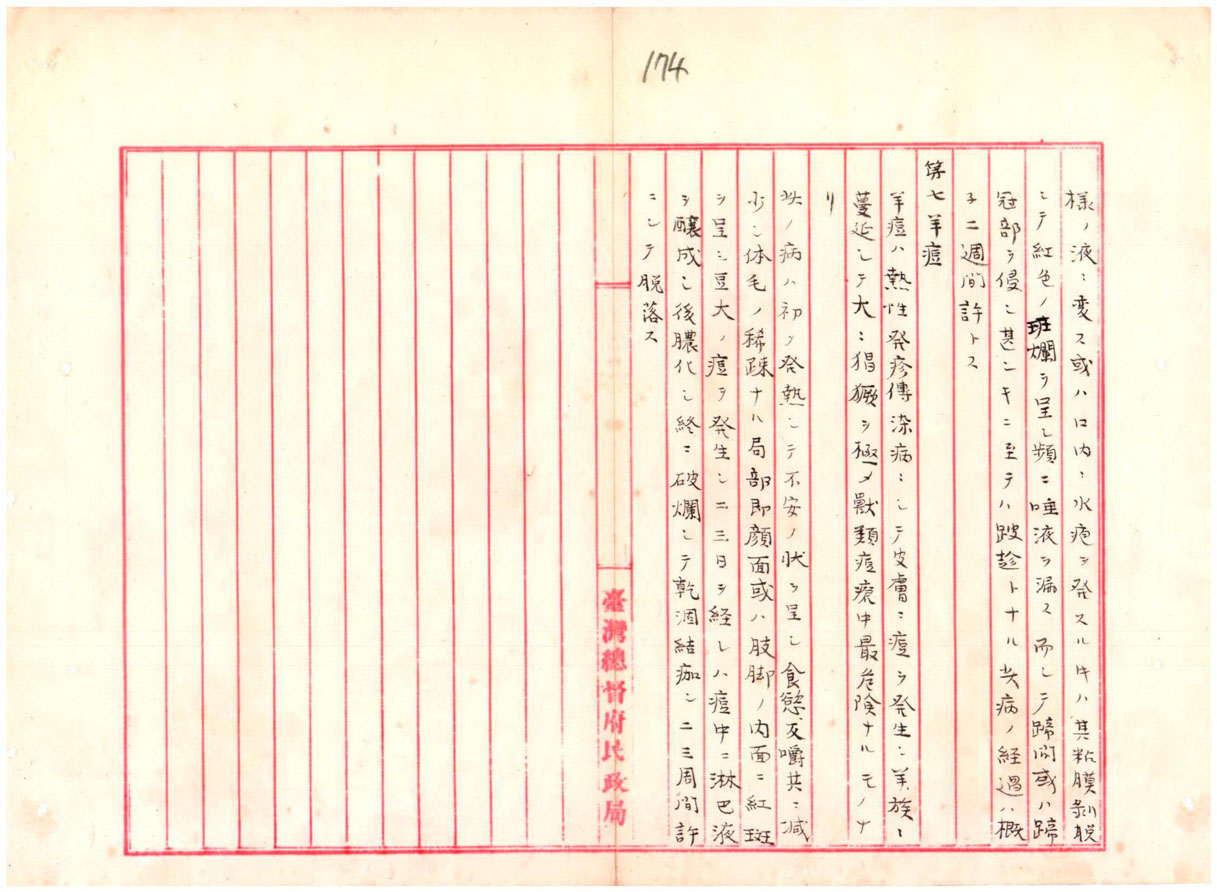 174
様ノ液ニ変ス或ハ口内ニ水疱ヲ発スルキハ其粘膜剝脱
シテ紅色ノ斑爛ヲ呈シ頻ニ唾液ヲ漏ス而シテ蹄間或ハ蹄
冠部ヲ侵シ甚シキニ至テハ跛趁トナル此病ノ経過ハ概
子二週間許トス
第七羊痘
羊痘ハ熱性発疹傳染病ニシテ皮膚ニ痘ヲ発生シ羊族ニ
蔓延シテ大ニ猖獗ヲ極メ獸類痘瘡中最危険ナルモノナ
リ
此ノ病ハ初メ発熱シテ不安ノ状ヲ呈シ食慾反嚼共ニ減
少シ体毛ノ稀疎ナル局部即顔面或ハ肢脚ノ内面ニ紅斑
ヲ呈シ豆大ノ痘ヲ発生シ二三日ヲ経レハ痘中ニ淋巴液
ヲ醸成シ後膿化シ終ニ破爛シテ乾涸結痂シ二三周間許
ニシテ脱落ス
臺灣總督府民政局